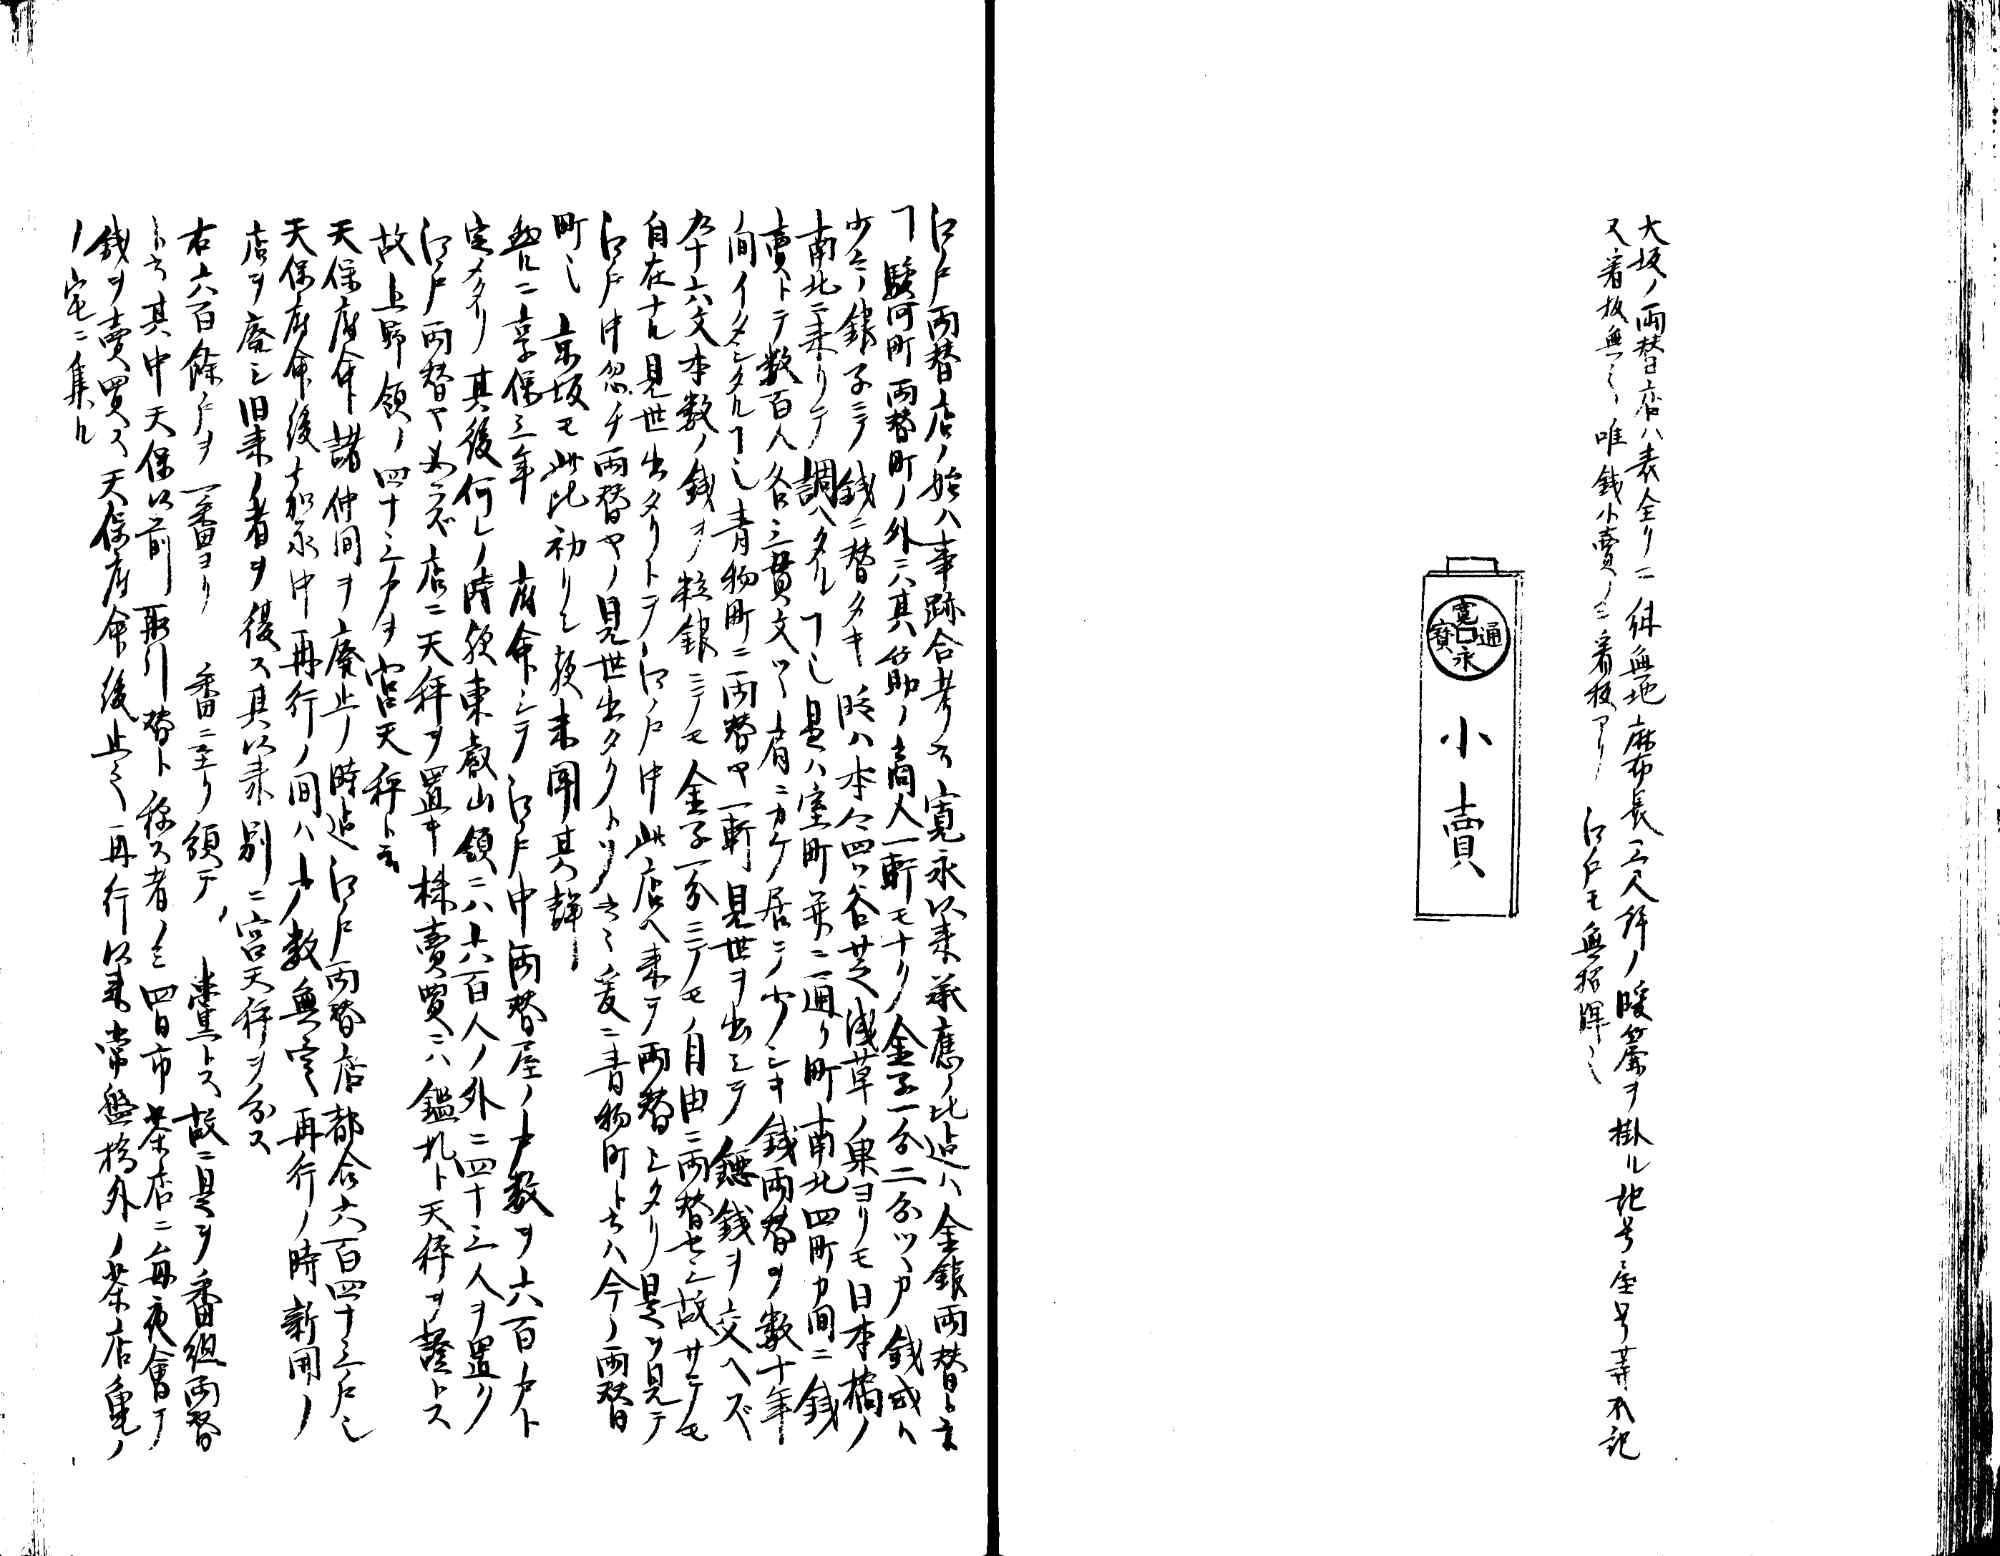 大坂ノ両替店ハ表全クニ紺無地麻布長三尺許ノ暖簾ヲ掛ル記号屋号等不記
又看板無之唯銭小賣ノミ看板アリ 江戸モ無招牌也
寛永通寳
小賣
江戸両替店ノ始ハ事跡合考ニ云寛永以来承應ノ比迠ハ金銀両替ト云
ヿ駿河町両替町ノ外ニ其筋ノ商人一軒モナク金子一分二分ツヽカ銭或ハ
少々ノ銀子ニテ銭ニ替タキ時ハ本今四ツ谷芝浅草ノ奥ヨリモ日本橋ノ
南北ニ来リテ調ヘタルヿ也是ハ室町并ニ通リ町南北四町カ間ニ銭
賣トテ数百人各三貫文ツヽ肩ニカケ居ニ少シキ銭両替ヲ数十年
ノ間イタシタルヿ也青物町ニ両替ヤ一軒見世ヲ出シテ鐚銭ヲ交ヘズ
九十六文本数ノ銭ヲ粒銀ニテモ金子一分ニテモ自由ニ両替セシ故サテモ
自在ナル見世出タリトテ江戸中此店ヘ来テ両替シタリ是ヲ見テ
江戸中忽チ両替ヤノ見世出タクトソ云々爰ニ青物町ト云ハ今ノ両替
町也 京坂モ此比初リシ歟未聞其詳
然ルニ享保三年 府命シテ江戸中両替屋ノ戸数ヲ六百戸ト
定メタリ其後何レノ時歟東叡山領ニハ六百人ノ外ニ四十三人ヲ置ク
江戸両替ヤ必ズ店ニ天秤ヲ置キ株賣買ニハ鑑札ト天秤ヲ證トス
故上野領ノ四十三戸ヲ宮天秤ト云
天保府命諸仲間ヲ廃止ノ時迠江戸両替店都合六百四十三戸也
天保府命後嘉永中再行ノ間ハ戸数無定再行ノ時新開ノ
店ヲ廃シ旧来ノ者ヲ復ス其以来別ニ宮天秤ヲ分ス
右六百餘戸ヲ一番ヨリ 番ニ至リ頒テ 黨トス故ニ是ヲ番組両替
ト云其中天保以前取引替ト称ス者ノミ四日市茶店ニ毎夜會テ
銭ヲ賣買ス天保府命後止之再行以来常盤橋外ノ茶店亀ノ
ノ宅ニ集ル